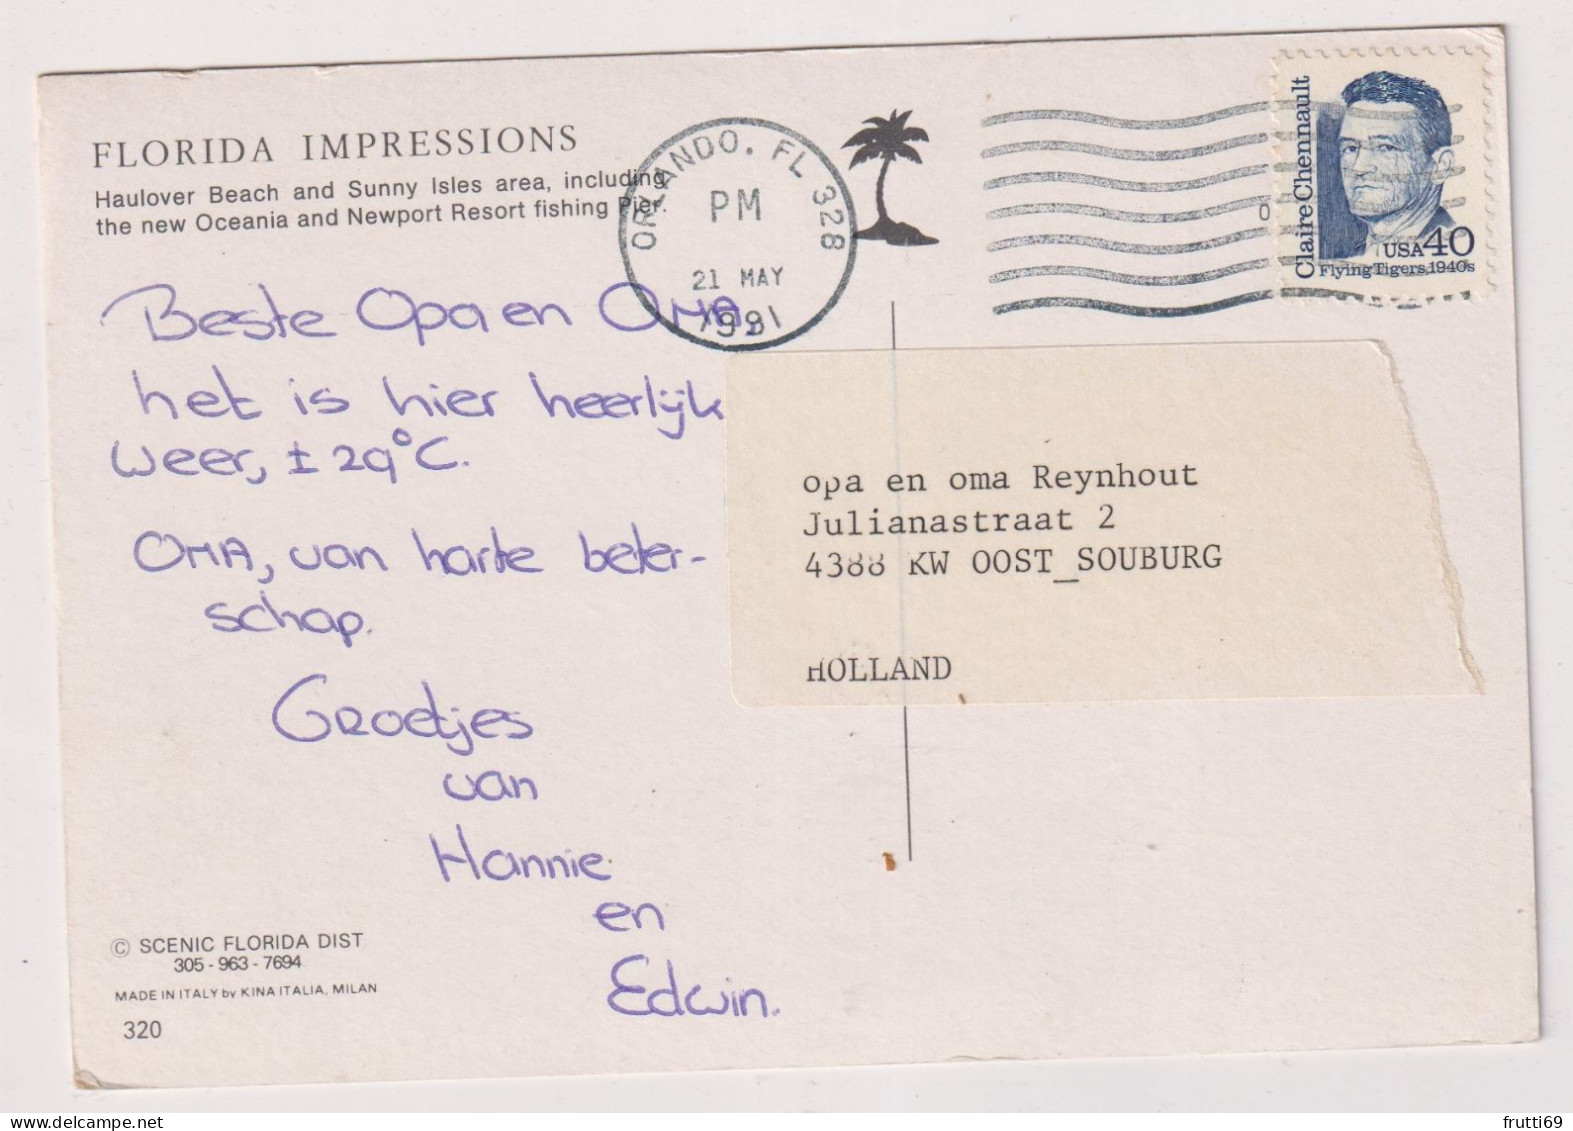 FLORIDA IMPRESSIONS
Haulover Beach and Sunny Isles area, including
the new Oceania and Newport Resort fishing Pier.
ORLANDO, FL 328
PM
21 MAY
1991
Claire Chennault
USA 40
Flying Tigers, 1940s
Beste Opa en OMA,
het is hier heerlijk
weer, ± 29°C.
OMA, van harte beter-
schap.
Groetjes
van
Hannie
en
Edwin.
opa en oma Reynhout
Julianastraat 2
4388 KW OOST_SOUBURG
HOLLAND
© SCENIC FLORIDA DIST
305-963-7694
MADE IN ITALY by KINA ITALIA, MILAN
320
frutti69